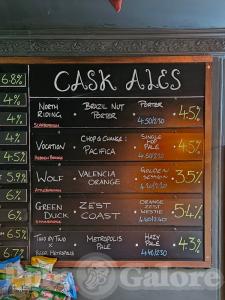 CASK ALES
6.8%
NORTH RIDING • BRAZIL NUT PORTER • PORTER 4.50/2.30 4.5%
4%
4%
VOCATION • CHOP & CHANGE: PACIFICA • SINGLE HOP PALE 4.50/2.30 4.5%
4%
4.5%
WOLF • VALENCIA ORANGE • GOLDEN SESSION 3.5%
5.9%
6%
GREEN DUCK • ZEST COAST • ORANGE ZEST WESTIE 4.50/2.30 5.4%
6%
6.5%
TWO BY TWO X • METROPOLIS PALE • HAZY PALE 4.3%
6.7%
Galore